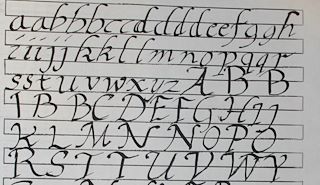 aabbbccddddeefggh
iiijjkkllmnopqqr
sstuvwxyzABB
IBBCDEFGHIJ
KLMNNOPQ
RSTTUVWY